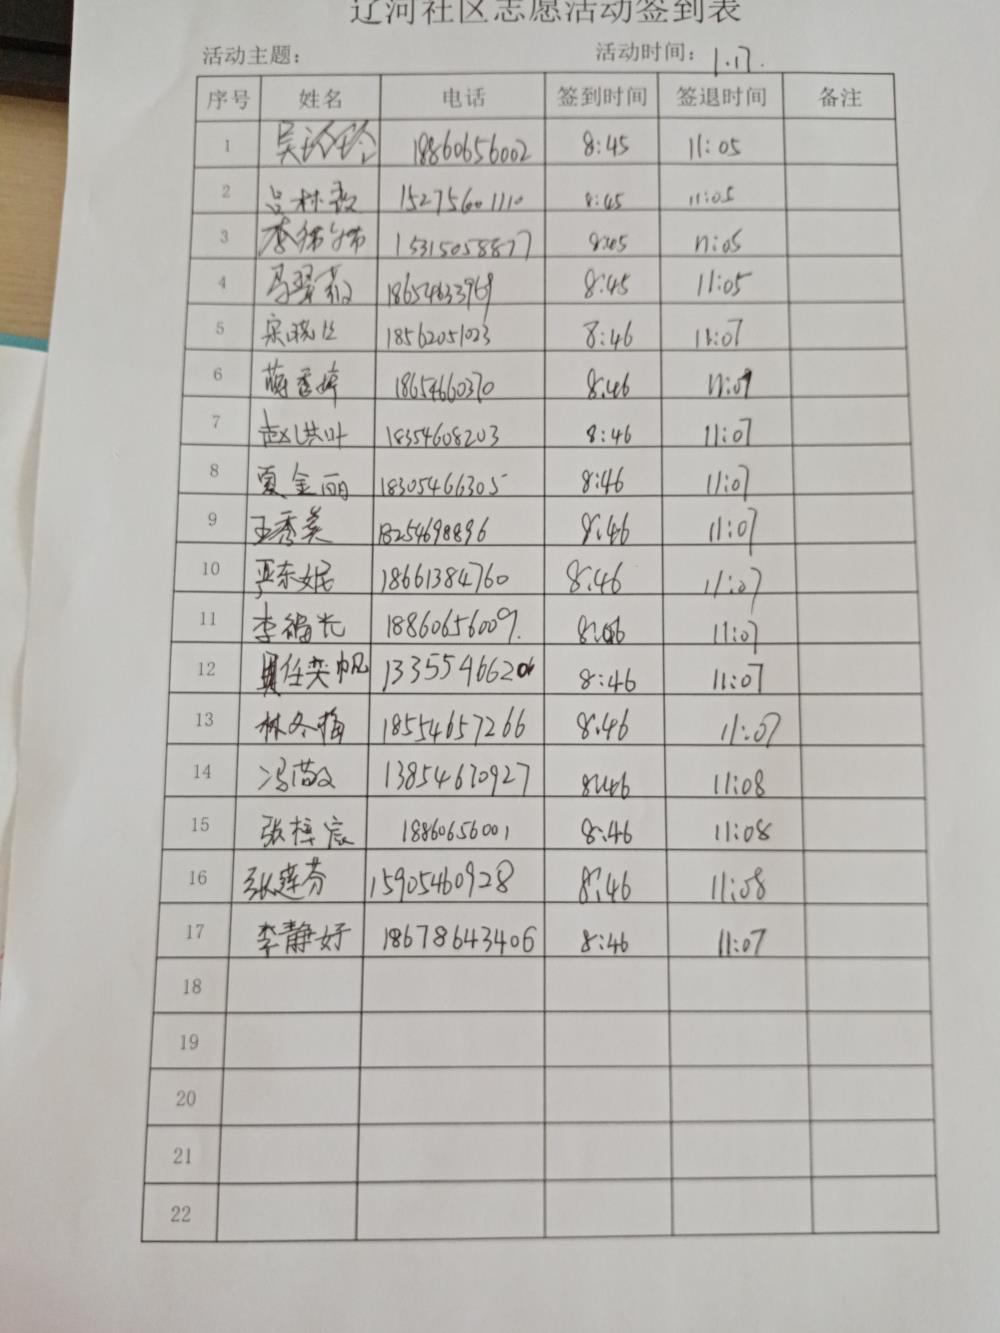 辽河社区志愿活动签到表
活动主题： 活动时间：1.17.
序号 姓名 电话 签到时间 签退时间 备注
1 吴玲玲 18860656002 8:45 11:05
2 吕林 15275601110 8:45 11:05
3 李 15315058877 8:45 11:05
4 冯翠 18654633969 8:45 11:05
5 宋晓 18562051023 8:46 11:07
6 18654660370 8:46 11:07
7 赵洪叶 18354608203 8:46 11:07
8 夏金丽 18305466305 8:46 11:07
9 王秀英 18254698896 8:46 11:07
10 严东 18661384760 8:46 11:07
11 李福长 18860656009. 8:46 11:07
12 任奕帆 13355466206 8:46 11:07
13 林冬梅 18554657266 8:46 11:07
14 冯 13854670927 8:46 11:08
15 张梓宸 18860656001 8:46 11:08
16 张莲芬 15905460928 8:46 11:08
17 李静好 18678643406 8:46 11:07
18
19
20
21
22